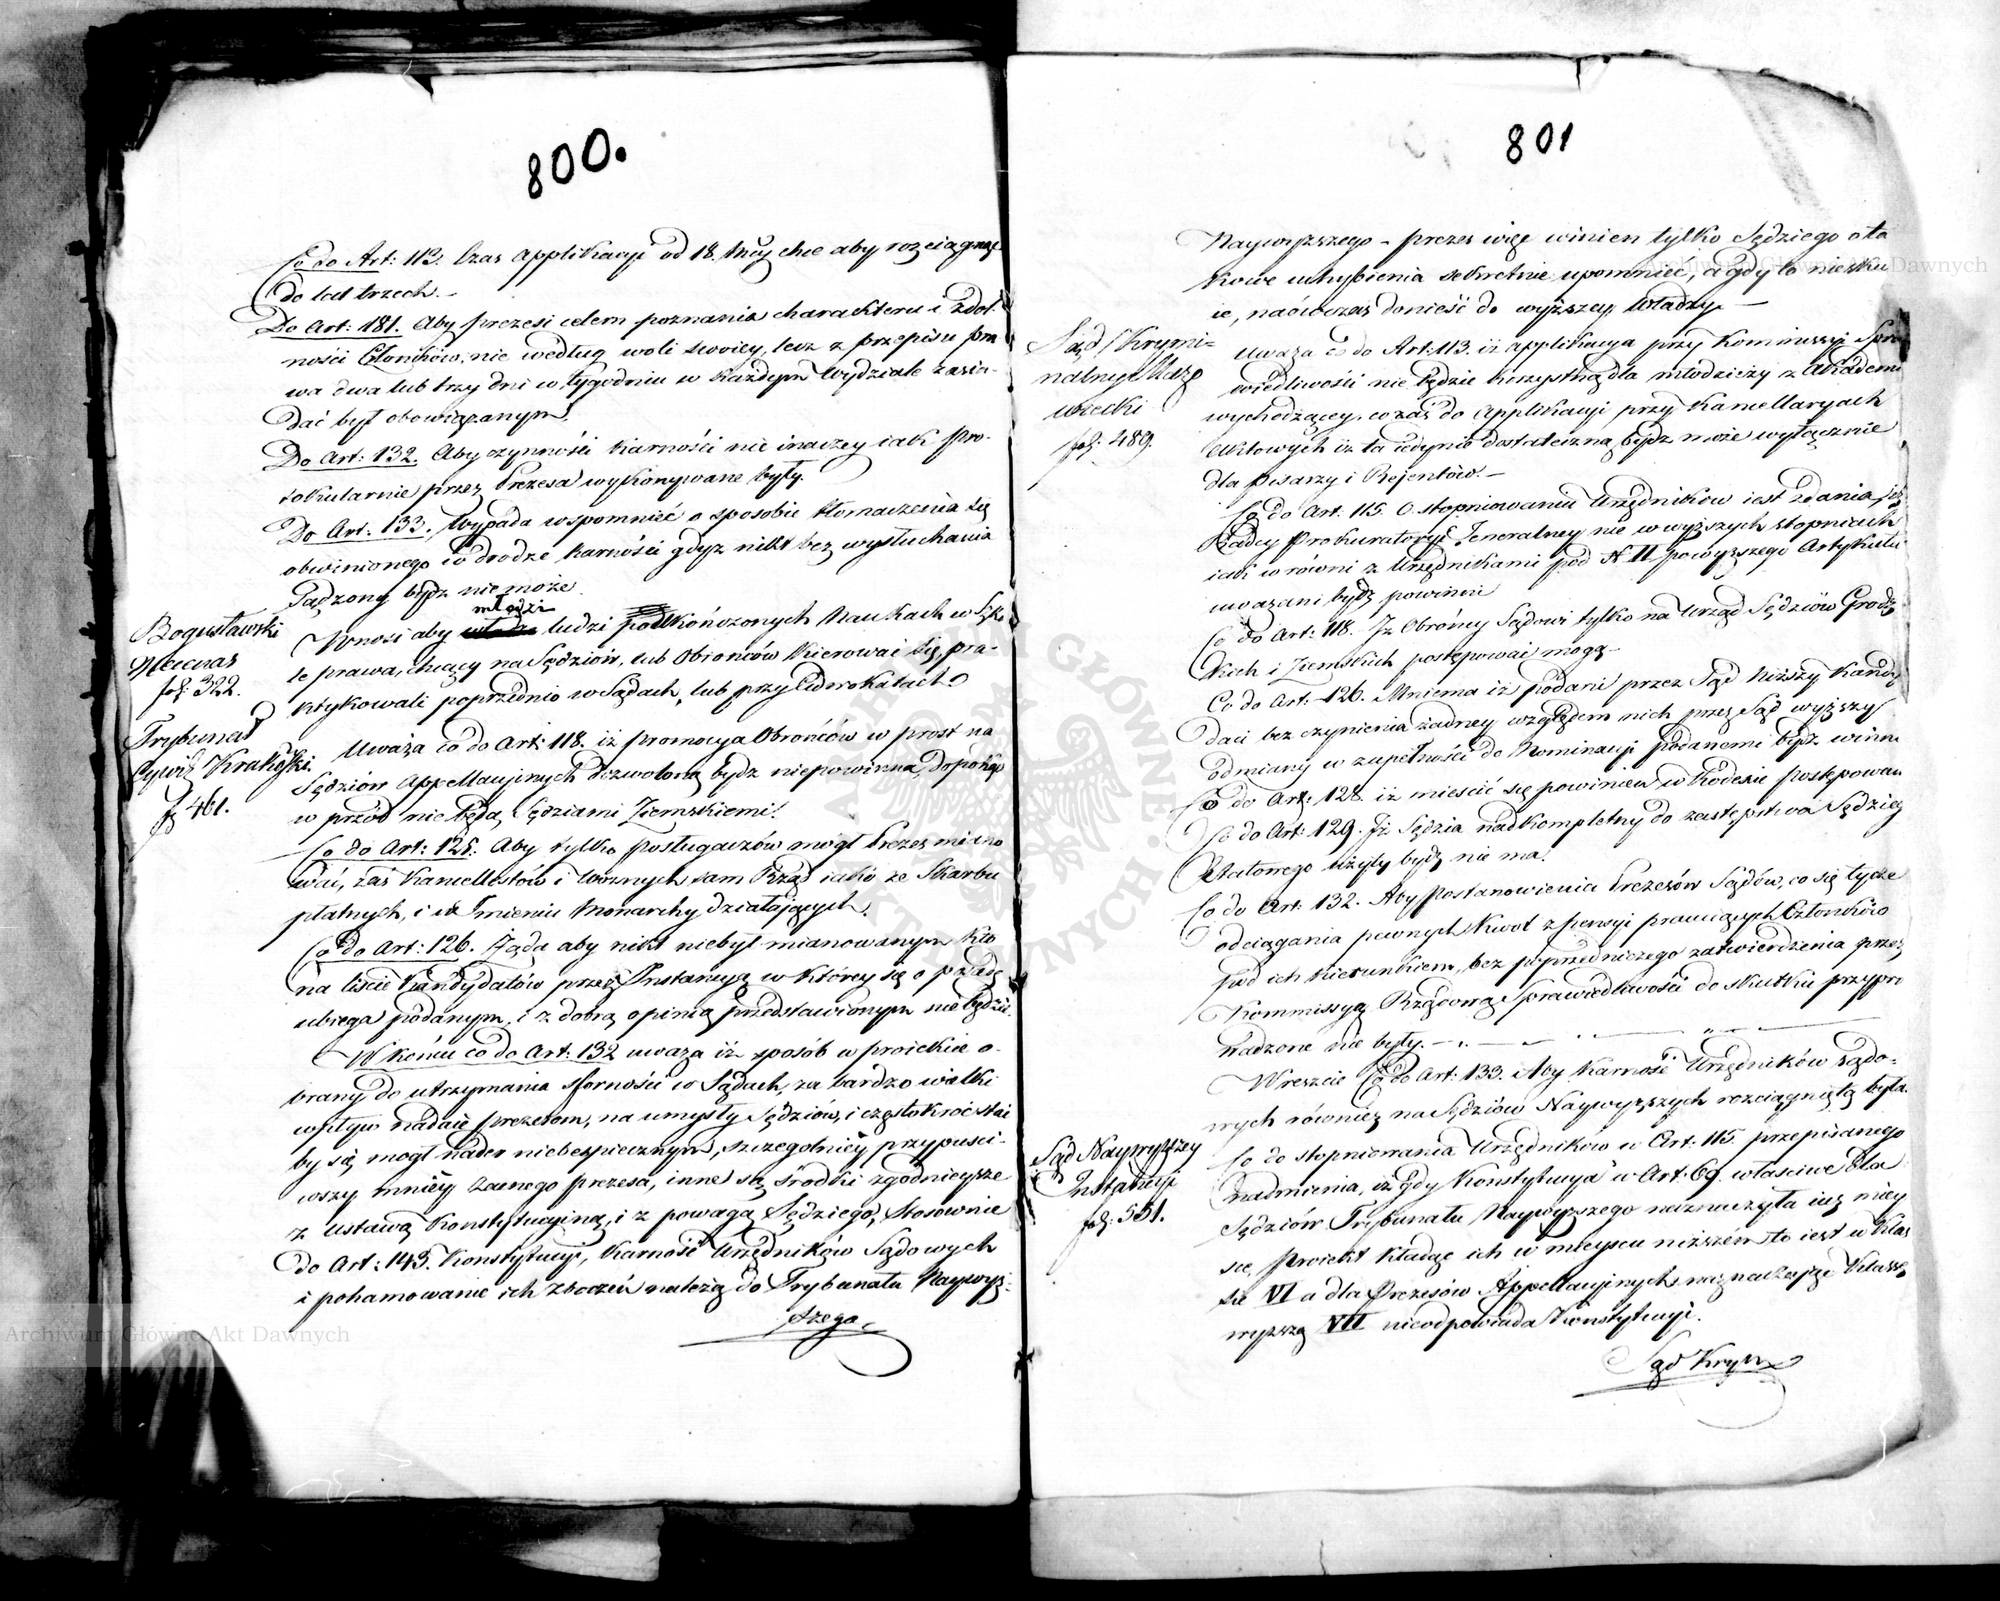 800.
Co do Art: 113. Czas applikacyi od 18. mcy chce aby rozciągnąć
do lat trzech. –
Do Art: 181. Aby prezesi celem poznania charakteru i zdol-
ności Członków, nie według woli swoiey, lecz z przepisu pra
wa dwa lub trzy dni w tygodniu w każdym Wydziale zasia-
dać był obowiązanym.
Do Art: 132. Aby czynności karności nie inaczey iak pro-
tokularnie przez Prezesa wykonywane były.
Do Art: 133. Wypada wspomnieć o sposobie tłomaczenia się
obwinionego w drodze karności gdyż nikt bez wysłuchania
sądzony bydz niemoże.
Bogusławski
Mecenas
fol: 322.
Wnosi aby młodzi ludzi pokończonych Naukach w Szko
le prawa, chcący na Sędziów, lub Obrońców kierować się, pra-
ktykowali poprzednio w Sądach, lub przy Adwokatach.
Trybunał
Cywil: Krakoski
f. 461.
Uważa co do Art: 118. iż promocya Obrońców w prost na
Sędziów Appellacyinych dozwolona bydz niepowinna, dopokąd
w przód nie będą Sędziami Ziemskiemi.
Co do Art: 125. Aby tylko posługaczów mógł Prezes miano
wać, zaś Kancellistów i Woznych sam Rząd iako ze Skarbu
płatnych, i w Imieniu Monarchy działających.
Co do Art: 126. Żąda aby nikt niebył mianowanym kto
na liście kandydatów przez Instancyą w którey się o posadę
ubiega podanym, i z dobrą opinią przedstawionym nie będzie.
W końcu co do Art: 132 uważa iż sposób w proiekcie o-
brany do utrzymania sforności w Sądach, za bardzo wielki
wpływ nadaie prezesom, na umysły Sędziów, i częstokroć stać
by się mogł nader niebezpiecznym, szczególniey przypuści-
wszy mniey zacnego prezesa, inne są środki zgodnieysze
z ustawą Konstytucyiną, i z powagą Sędziego, Stosownie
do Art: 143. Konstytucyi, karność Urzędników Sądowych
i pohamowanie ich zboczeń należą do Trybunału Naywyż-
szego,
801
Naywyższego – prezes więc winien tylko Sędziego o ta
kowe uchybienia sekretnie upomnieć, a gdy to niesku
ie, naówczas donieść do wyższey Władzy. –
Sąd Krymi-
nalny Mazo
wiecki
fol: 489.
Uważa co do Art: 113. iż applikacya przy Kommissyi Spra
wiedliwości nie będzie korzystną dla młodzieży z Akademii
wychodzącey, co zaś do Applikacyi przy Kancellaryach
Aktowych iż ta iedynie dostateczną bydz może wyłącznie
dla pisarzy i Rejentów. –
Co do Art: 115. o stopniowaniu Urzędników iest zdania, iż
Radcy Prokuratoryi Jeneralney nie w wyższych stopniach
iak w równi z Urzędnikami pod N II powyższego Artykułu
uważani bydz powinni
Co do Art: 118. – Iż Obrońcy Sądowi tylko na Urząd Sędziów Grodz
kich i Ziemskich postępować mogą –
Co do Art: 126. Mniema iż podani przez Sąd Niższy kandy
daci bez czynienia żadney względem nich przez Sąd wyższy
odmiany w zupełności do Nominacyi podanemi bydz winni
Co do Art: 128. iż mieścić się powinien w Kodexie postępowan
Co do Art: 129. Iż Sędzia nadkompletny do zastępstwa Sędziego
Etatowego użyty bydz nie ma.
Co do Art: 132. Aby postanowienia Prezesów Sądów, co się tycze
odciągania pewnych kwot z pensyi pracuiących Członków
pod ich kierunkiem, bez poprzedniczego zatwierdzenia przez
Kommissyą Rządową Sprawiedliwości do skutku przypro
wadzone nie były. –
Wreszcie Co do Art: 133. Aby karność Urzędników sądo-
wych również na Sędziów Naywyższych rozciągniętą była.
Sąd Naywyższey
Instancyi
fol: 551.
Co do stopniowania Urzędników w Art: 115. przepisanego
nadmienia, iż gdy Konstytucya w Art: 69. właściwe dla
Sędziów Trybunału Naywyższego naznaczyła iuż miey
sce, Proiekt kładąc ich w mieyscu niższem to iest w klas
sie VI a dla Prezesów Appellacyinych naznaczaiąc Klassę
wyższą VII nieodpowiada Konstytucyi.
Sąd Krym